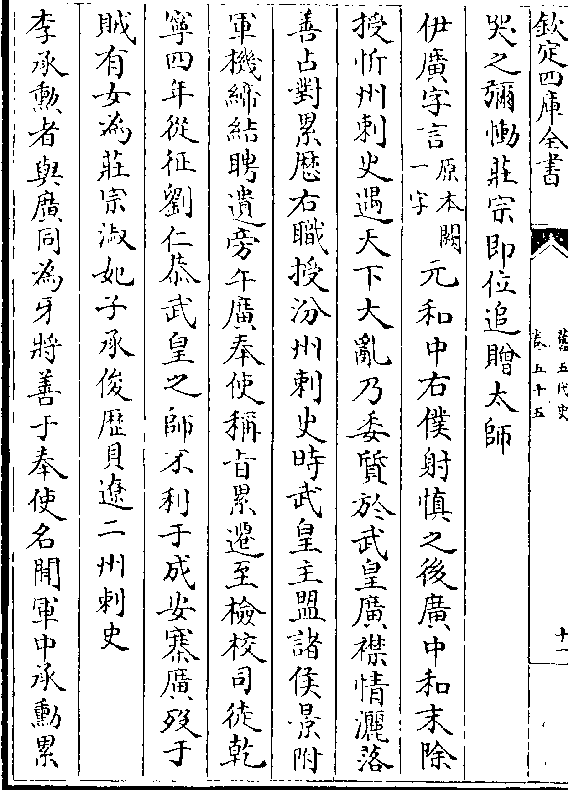 欽定四庫全書
舊五代史
卷五十五
十二
哭之彌慟莊宗即位追贈太師
伊廣字言原本闕一字元和中右僕射慎之後廣中和末除
授忻州刺史遇天下大亂乃委質於武皇廣襟情灑落
善占對累歷右職授汾州刺史時武皇主盟諸侯景附
軍機締結聘遺旁午廣奉使稱旨累遷至檢校司徒乾
寧四年從征劉仁恭武皇之師不利于成安寨廣歿于
賊有女為莊宗淑妃子承俊歷貝遼二州刺史
李承勲者與廣同為牙將善于奉使名聞軍中承勲累